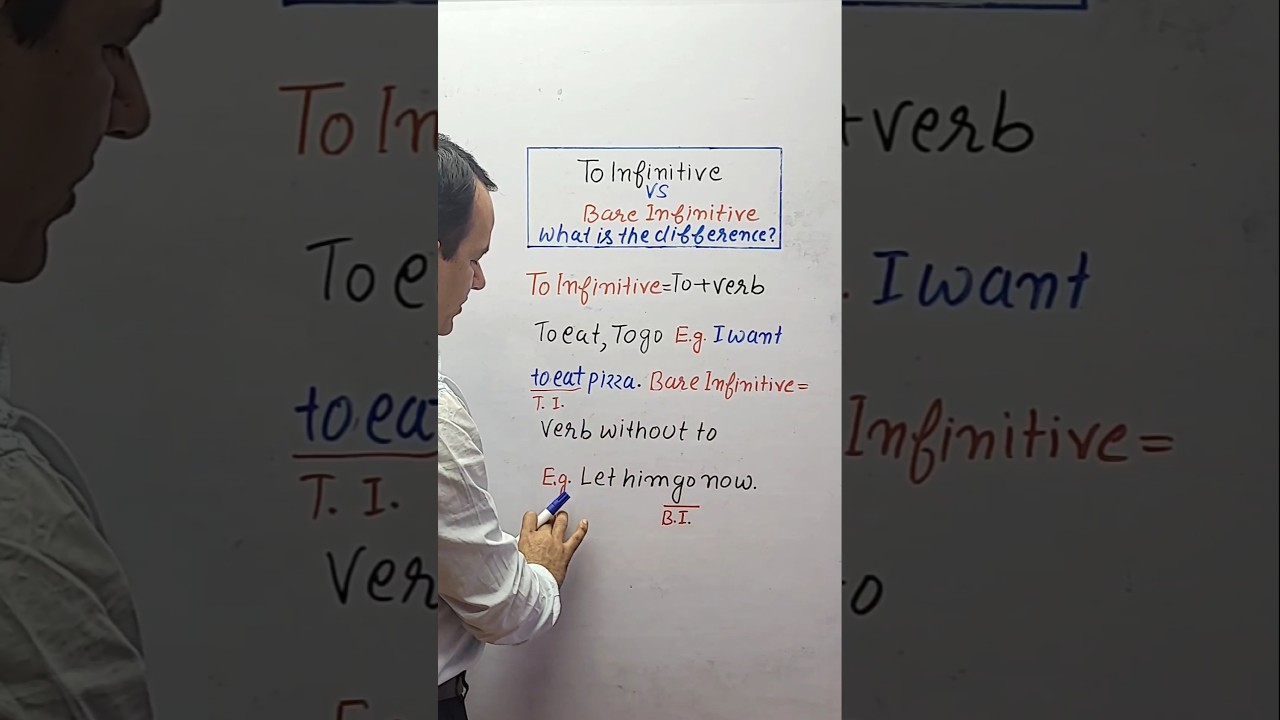 To Infinitive
VS
Bare Infinitive
What is the difference?
To Infinitive=To+verb
To eat, To go E.g. I want
to eat pizza. Bare Infinitive=
T. I.
Verb without to
E.g. Let him go now.
B.I.